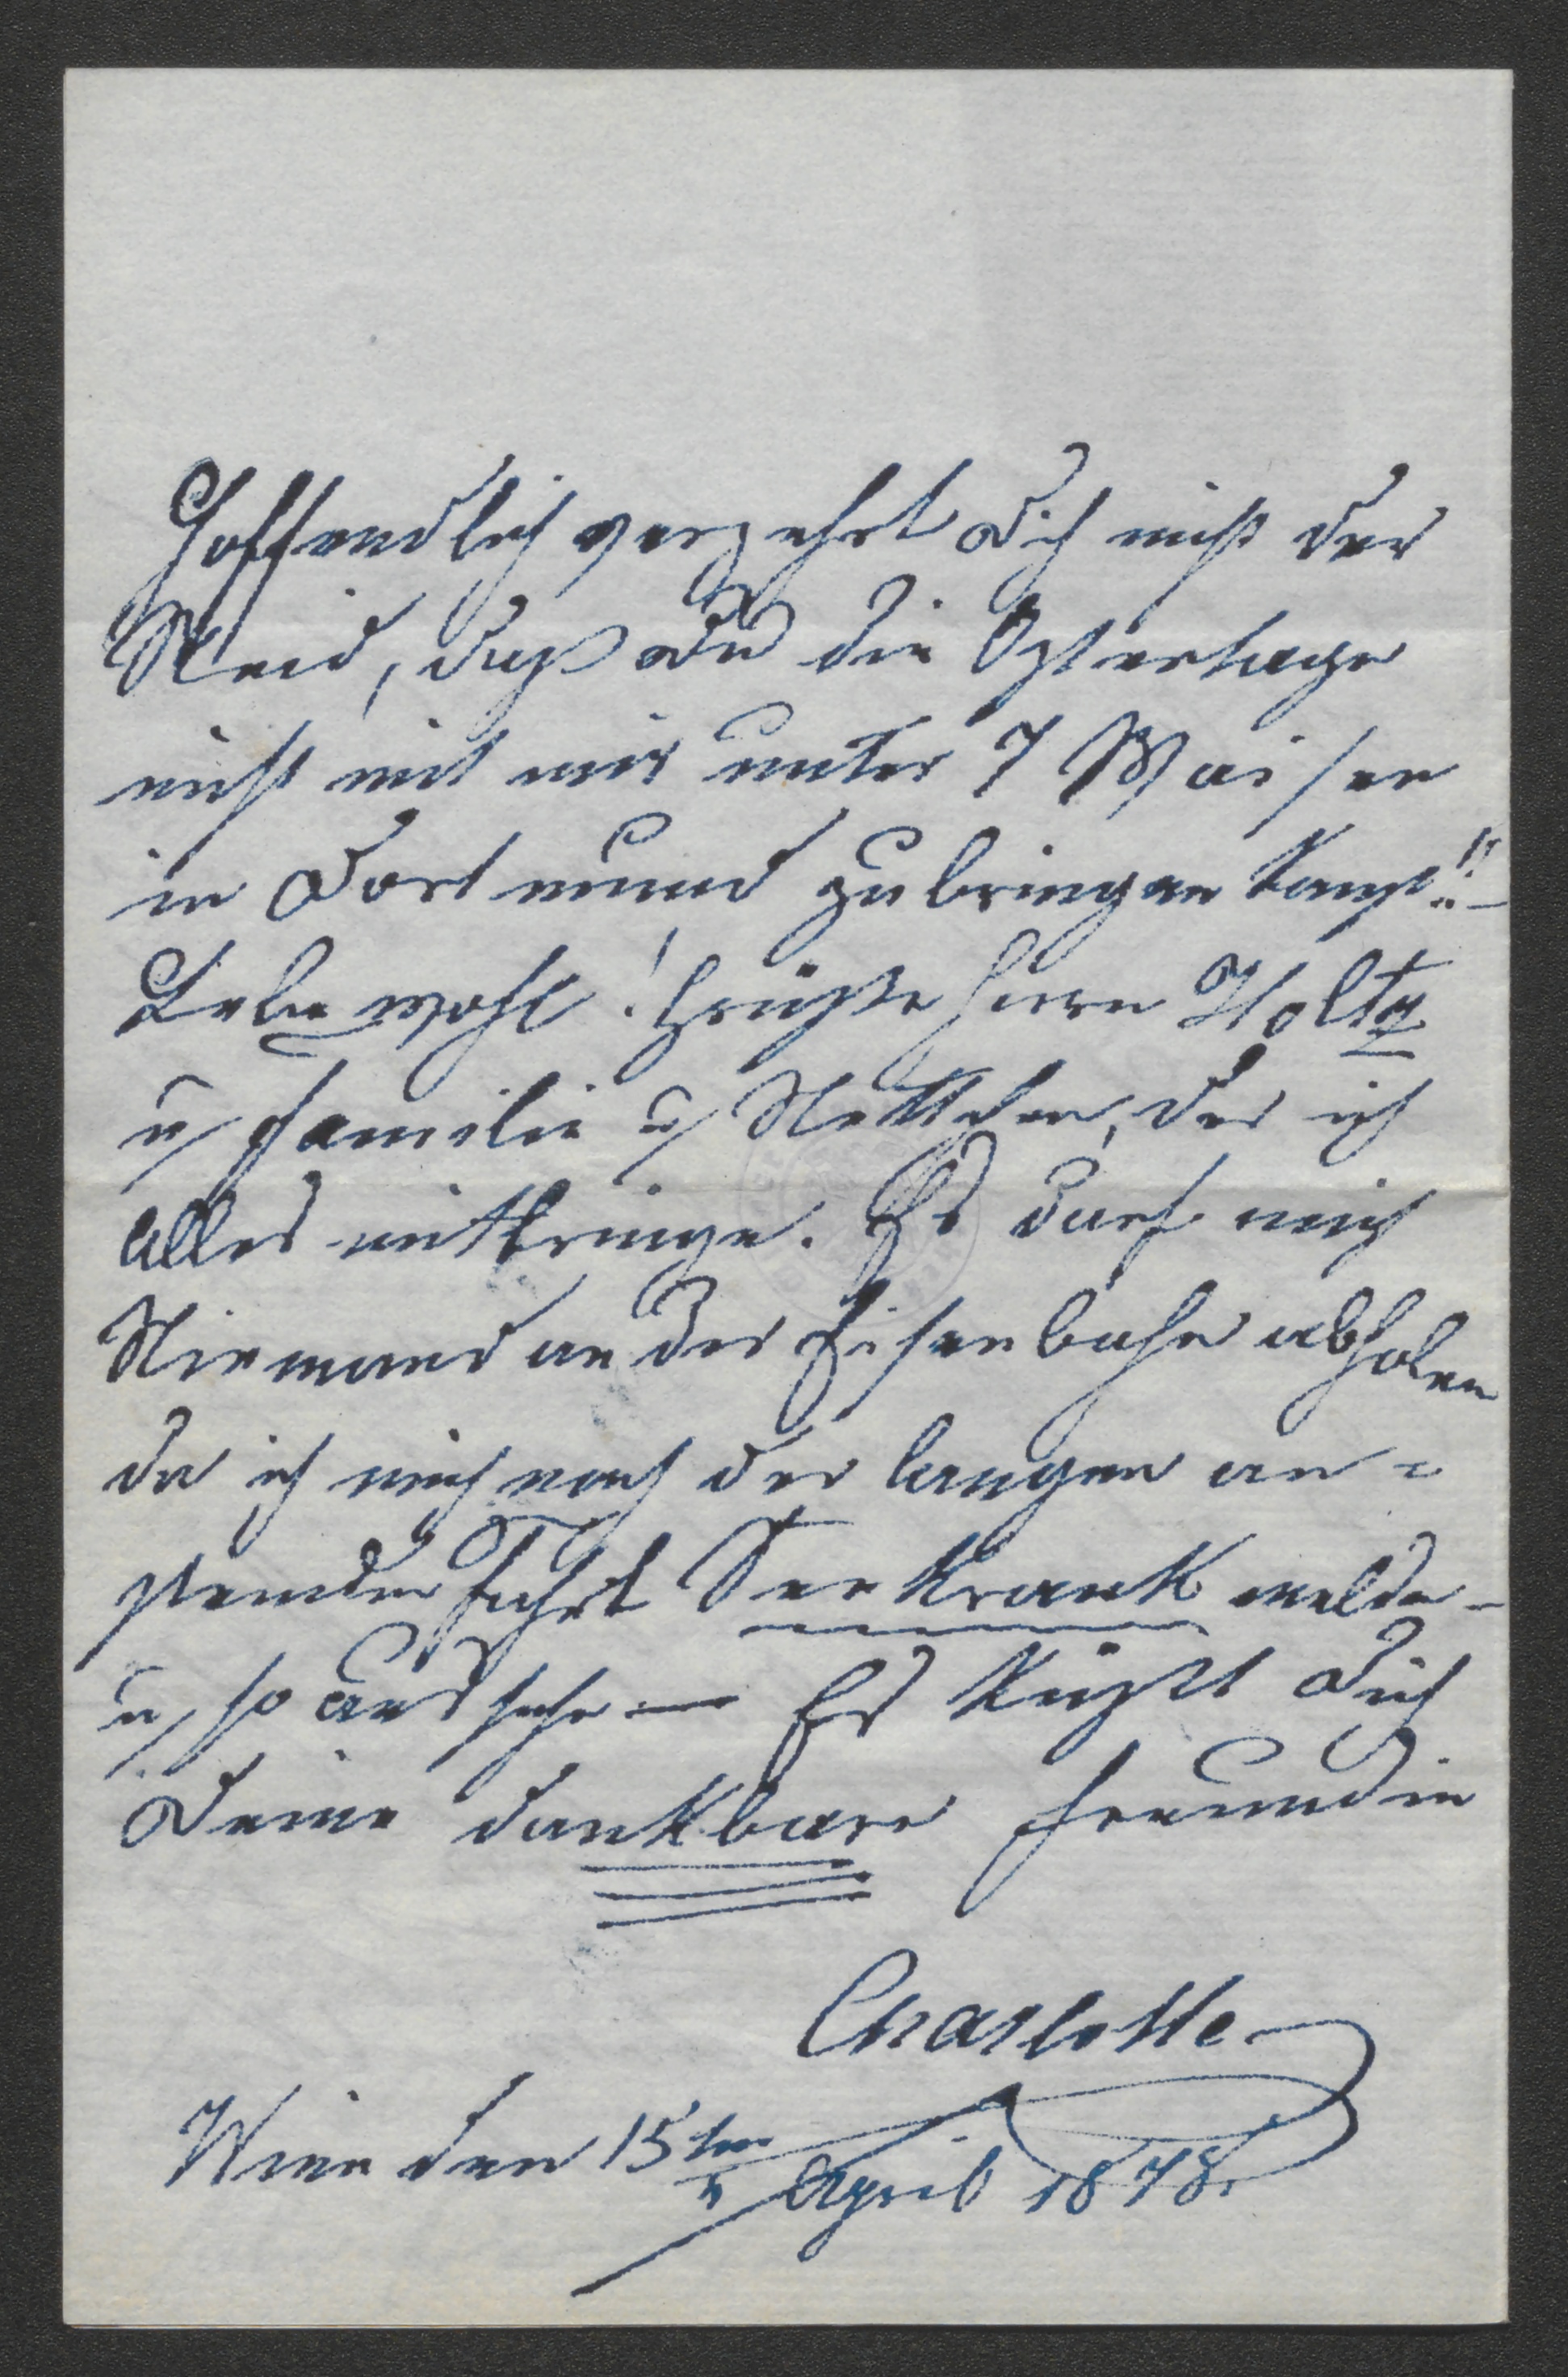 Hoffendlich verzehrt Dich nicht der
Neid, daß Du die Ostertage
nicht mit mir unter 7 Waisen
in Dortmund zubringen kanst!! –
Lebe wohl! Grüße Herrn Holtz
u Familie u Nettchen, der ich
Alles mitbringe. Es darf mich
Niemand an der Eisenbahn abholen
da ich mich nach der langen an=
Fahrt Seekrank melde –
u so aussehe — Es küßt Dich
Deine dankbare Freundin
Charlotte
Wien den 15ten April 1878.